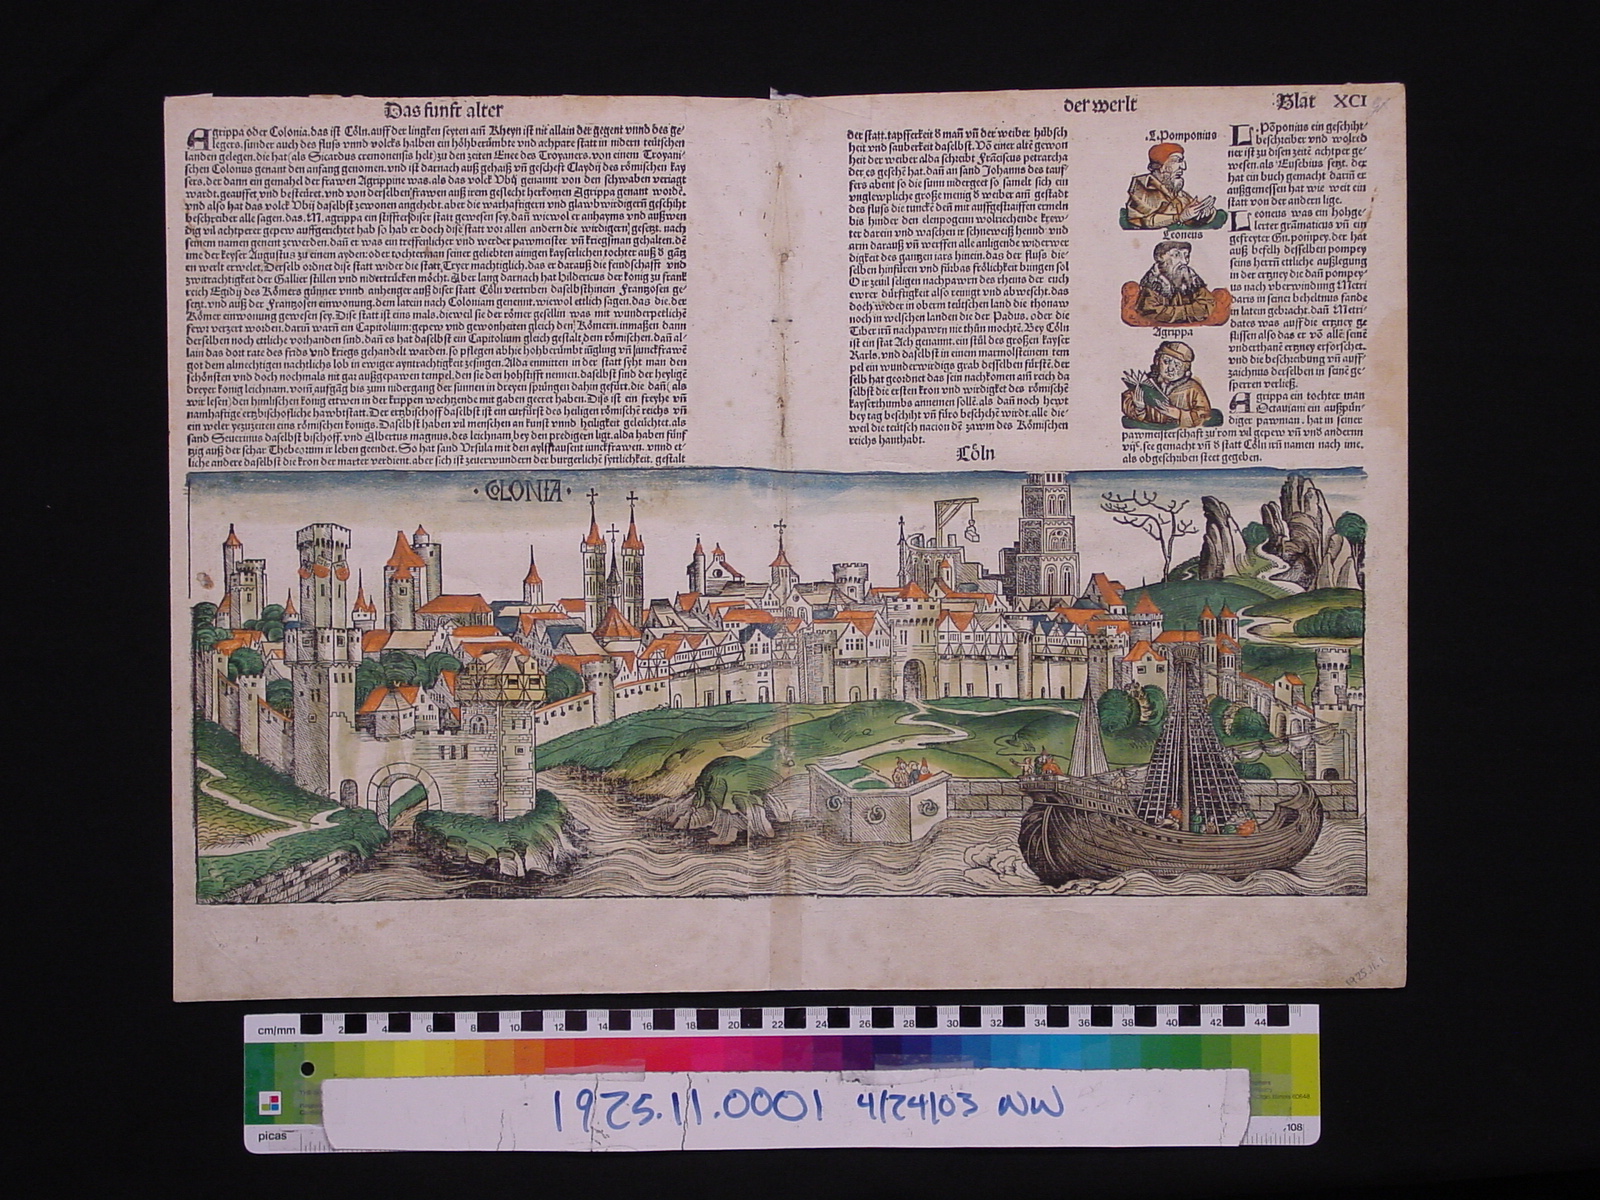 Das funft alter
Agrippa oder Colonia. das ist Cöln. auff der lingken seyten am̄ Rheyn ist nit allain der gegent vnnd des ge/
legers. sunder auch des fluss vnnd volcks halben ein höhberümbte vnd achpare statt in nidern teütschen
landen gelegen. die hat (als Sicardus cremonensis helt) zu den zeiten Enee des Troyaners. von einem Troyani/
schen Colonus genant den anfang genomen. vnd ist darnach auß gehaiß vn̄ gescheft Claydij des römischen kay
sers. der dann ein gemahel der frawen Agrippine was. als das volck Vbij genannt von den schwaben veriagt
wardt. geaufft. vnd besteüret. vnd von derselben frawen auß irem geslecht herkomen Agrippa genant worde.
vnd also hat das volck Vbij daselbst zewonen angehebt. aber die warhaftigern vnd glawbwirdigern geschiht
beschreiber alle sagen. das. M. agrippa ein stiffter diser statt gewesen sey. dan̄ wiewol er anhayms vnd außwen
dig vil achtperer gepew auffgerichtet hab so hab er doch dise statt vor allen andern die wirdigern gesetzt. nach
seinem namen genent zewerden. dan̄ er was ein treffenlicher vnd werder pawmeister vn̄ kriegsman gehalten. dē
ime der keyser Augustus zu einem ayden. oder tochterman seiner geliebten ainigen kayserlichen tochter auß d̄ gātz
en werlt erwelet. Derselb ordnet dise statt wider die statt Tryer mächtiglich. das er darauß die feindschafft vnd
zwitrachtigkeit der Gallier stillen vnd nidertrücken möcht. Aber lang darnach hat hildericus der konig zu frank
reich Egidij des Römers günner vnnd anhenger auß diser statt Cöln vertriben daselbsthinein Franzosen ge/
setzt. vnd auß der Franzosen einwonung. dem latein nach Coloniam genennt. wiewol ettlich sagen. das die. der
Römer einwonung gewesen sey. Dise statt ist eins mals. dieweil sie der römer gesellin was mit wunderpetliche
fewr verzert worden. darin̄ warn ein Capitolium: gepew vnd gewonheiten gleich den Römern. inmaßen dann
derselben noch ettliche vorhanden sind. dan̄ es hat daselbst ein Capitolium gleich gestalt dem römischen. dan̄ al/
lain das dott rate des frids vnd kriegs gehandelt warden. so pflegen alhie hohberümbt iüngling vn̄ Junckfrawē
got dem almechtigen nachtlichs lob in ewiger ayntrachtigkeit zesingen. Alda enmitten in der statt syht man den
schönsten vnd doch nochmals nit gar außgepawen tempel. den sie den hohstifft nennen. daselbst sind der heylige
dreyer konig leichnam. vom̄ aufgāg bis zum nidergang der sunnen in dreyen sprüngen dahin gefürt. die dan̄ (als
wir lesen) den himlischen konig etwen in der krippen wechzende mit gaben geeret haben. Diss ist ein freyhe vn̄
namhaftige ertzbischofliche hawbtstatt. Der ertzbischof daselbst ist ein curfürst des heiligen römische reichs vn̄
ein weler yezuzeiten eins römischen konigs. Daselbst haben vil menschen an kunst vnnd heiligkeit geleüchtet. als
sand Seuerinus daselbst bischoff. vnd Albertus magnus. des leichnam. bey den predigern ligt. alda haben fünf
tzig auß der schar Thebeorum ir leben geendet. So hat sand Ursula mit den aylfftausent iunckfrawen. vnnd et/
liche andere daselbst die kron der marter verdient. aber sich ist zeuerwundern der burgerliche syttlichkeit. gestalt
der werlt
der statt. tapfferkeit d̄ man̄ vn̄ der weiber hübsch
heit vnd sauberkeit daselbst. Vō einer altē gewon
heit der weiber alda schreibt Frāciscus petrarcha
der es geschē hat. dan̄ an sand Johanns des tauf
fers abent so die sunn nidergeet so samelt sich ein
vnglewpliche große menig d̄ weiber am̄ gestadt
des fluss die tunckē den̄ mit auffgestraifften ermeln
bis hinder den elenpogenn wolriechende krew/
ter darein vnd waschen ir schneweiß hennd vnd
arm darauß vn̄ werffen alle anligende widerwer
digkeit des gantzen iars hinein. das der fluss die
selben hinfüren vnd fürbas frölichkeit bringen sol
O ir zeuil seligen nachpawrn des rheins der euch
ewrer dürftigkeit also reinigt vnd abwescht. das
doch weder in obern teütschen land die thonaw
noch in welschen landen die der Padus. oder die
Tiber irn̄ nachpawrn nie thūn mochtē. Bey Cöln
ist ein stat Ach genannt. ein stūl des großen kayser
Karls. vnd daselbst in einem marmolsteinem tem
pel ein wunderwirdigs grab desselben fürstē. der
selb hat geordnet das sein nachkomen am̄ reich da
selbst die ersten kron vnd wirdigkeit des römischē
kayserthumbs annemen sollē. als dan̄ noch hewt
bey tag beschiht vn̄ füro beschehē wirdt. alle die-
weil die teütsch nacion dē zawm des Römischen
reichs hanthabt.
Cöln
Blat XCI
.L. Pomponius
Leoneus
Agrippa
L. Pōponius ein geschiht-
beschreiber vnd wolred
ner ist zu disen zeitē achtper ge-
wesen. als Eusebius setzt. der
hat ein buch gemacht darin̄ er
außgemessen hat wie weit ein
statt von der andern lige.
Leoneus was ein hohge-
lerter grāmaticus vn̄ ein
gefreyter Gn. pompey. der hat
auß befelh desselben pompey
seins herrn̄ ettliche außlegung
in der ertzney die dan̄ pompey-
us nach vberwindung Metri
daris in seiner beheltnus fande
in latein gebracht. dan̄ Metri-
dates was auff die ertzney ge
flissen also das er vō allē seinē
vnderthanē ertzney erforschet.
vnd die beschreibung vn̄ auff-
zaichnus derselben in seinē ge-
sperren verließ.
Agrippa ein tochter man
Octauiani ein außpūn-
diger pawman. hat in seiner
pawmeisterschaft zu rom vil gepew vn̄ vnd anderm
vijß. see gemacht vn̄ d̄ statt Cöln irn̄ namen nach ime.
als obgeschriben steet gegeben.
· COLONIA ·
1925.11.1
cm/mm 2 4 6 8 10 12 14 16 18 20 22 24 26 28 30 32 34 36 38 40 42 44
1925.11.0001 4/24/03 NW
picas 108